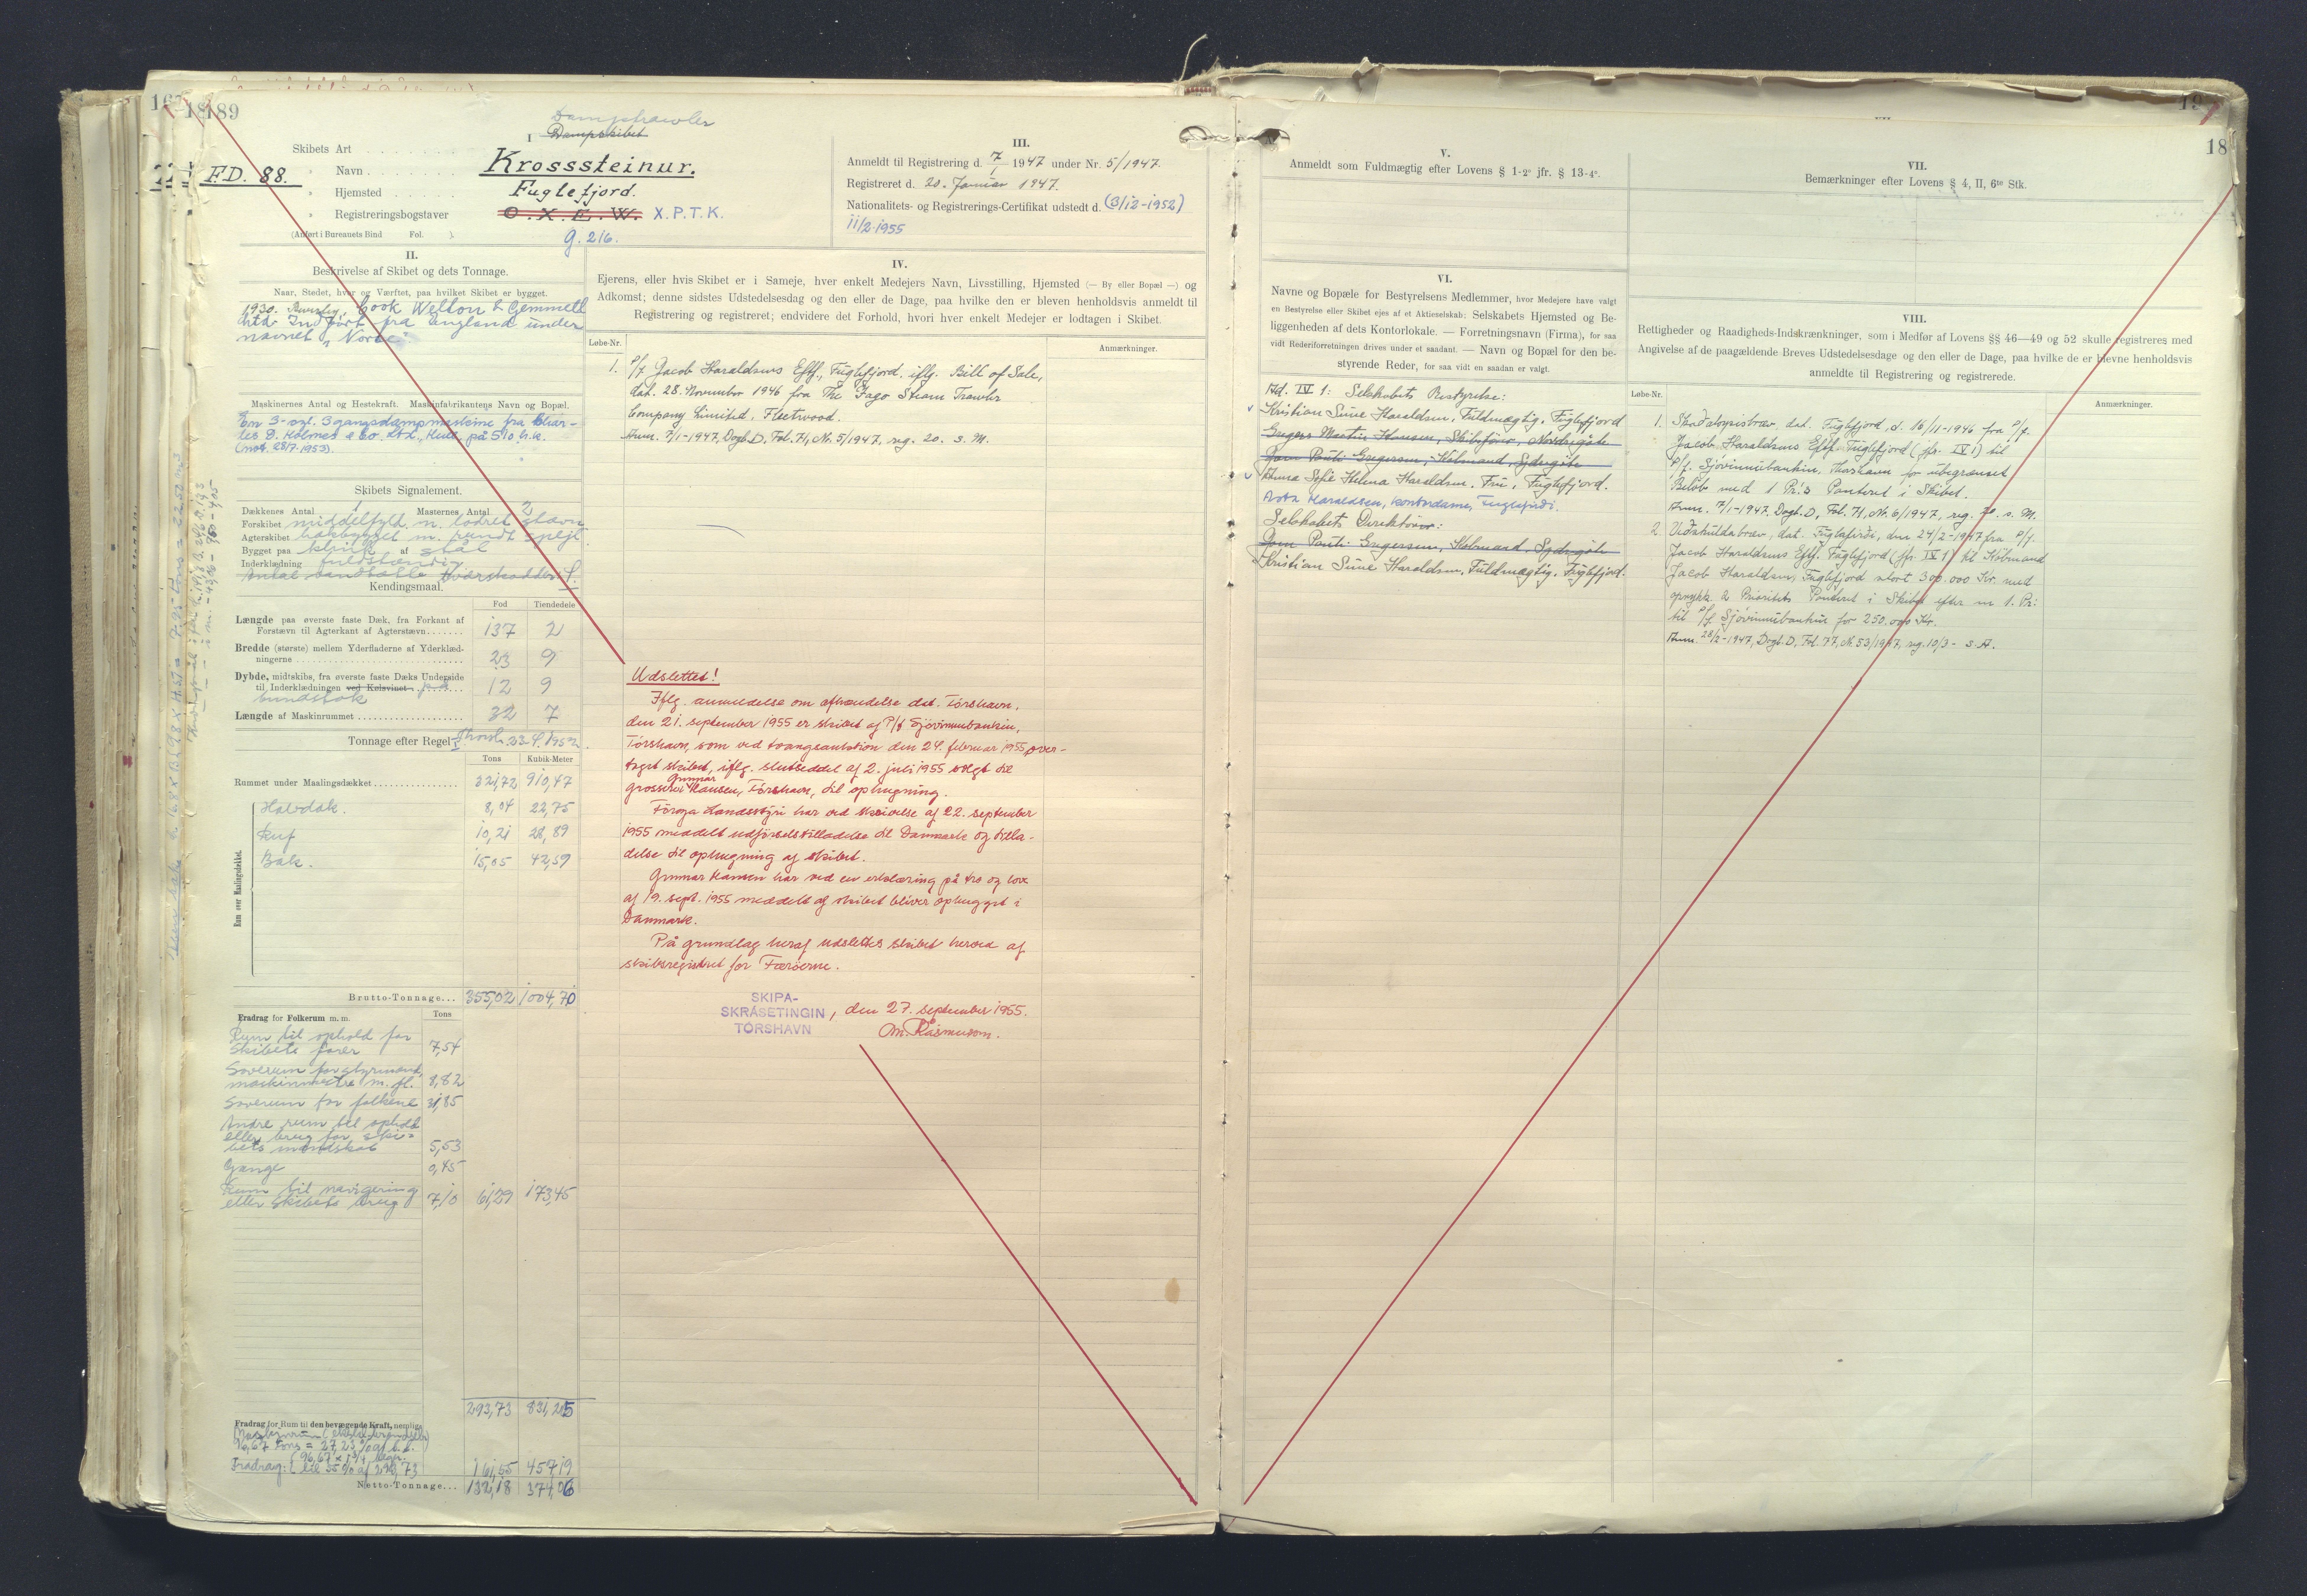 189
Damptrawler
I Dampskibet
Skibets Art
F.D. 88.
" Navn Krosssteinur.
" Hjemsted Fuglefjord.
" Registreringsbogstaver O.X.E.W. X.P.T.K.
(Anført i Bureauets Bind Fol. ).
g. 216.
II.
Beskrivelse af Skibet og dets Tonnage.
Naar, Stedet, hvor og Værftet, paa hvilket Skibet er bygget.
1930. Beverley, Cook Welton & Gemmell
Ltd. Indført fra England under
navnet "
Maskinernes Antal og Hestekraft. Maskinfabrikantens Navn og Bopæl.
En 3-cyl. 3gangsdampmaskine fra Char-
les D. Holmes & Co. Ltd., Hull, på 510 h.k.
(mod. 28/7-1953).
Skibets Signalement.
Dækkenes Antal 1 Masternes Antal 2
Forskibet middelfyldt m. lodret stævn
Agterskibet hækbygget m. rundt spejl
Bygget paa klink af stål
Inderklædning fuldstændig
Antal vandtætte tværskodder: 4.
Kendingsmaal.
Fod Tiendedele
Længde paa øverste faste Dæk, fra Forkant af
Forstævn til Agterkant af Agterstævn 137 2
Bredde (største) mellem Yderfladerne af Yderklæd-
ningerne 23 9
Dybde, midtskibs, fra øverste faste Dæks Underside
til Inderklædningen ved Kølsvinet på 12 9
bundstok
Længde af Maskinrummet 32 7
Tonnage efter Regel I Thorsh. 23-4-1952.
Tons Kubik-Meter
Rummet under Maalingsdækket 321,72 910,47
Rum over Maalingsdækket.
Halvdæk. 8,04 22,75
Ruf 10,21 28,89
Bak. 15,05 42,59
Brutto-Tonnage... 355,02 1004,70
Fradrag for Folkerum m. m. Tons
Rum til ophold for
skibets fører 7,54
Soverum for styrmand,
maskinmestre m. fl. 8,82
Soverum for folkene 31,85
Andre rum til ophold
eller brug for ski-
bets mandskab 5,53
Gange 0,45
Rum til navigering
eller skibets brug 7,10 61,29 173,45
293,73 831,25
Fradrag for Rum til den bevægende Kraft, nemlig
96,67 Tons = 27,23 % af b.t.
Fradrag: til 55 % af 293,73 161,55 457,19
Netto-Tonnage... 132,18 374,06
III.
Anmeldt til Registrering d. 7/1 1947 under Nr. 5/1947.
Registreret d. 20. Januar 1947.
Nationalitets- og Registrerings-Certifikat udstedt d. (3/12-1952)
11/2-1955
IV.
Ejerens, eller hvis Skibet er i Sameje, hver enkelt Medejers Navn, Livsstilling, Hjemsted (— By eller Bopæl —) og
Adkomst; denne sidstes Udstedelsesdag og den eller de Dage, paa hvilke den er bleven henholdsvis anmeldt til
Registrering og registreret; endvidere det Forhold, hvori hver enkelt Medejer er lodtagen i Skibet.
Løbe-Nr. Anmærkninger.
1. P/f Jacob Haraldsens Eftf., Fuglefjord. iflg. Bill of Sale,
dat. 28. November 1946 fra The Iago Steam Trawler
Company Limited. Fleetwood.
Anm. 7/1-1947, Dagb. D, Fol. 71, Nr. 5/1947, reg. 20. s. M.
Udslettet!
Iflg. anmeldelse om afhændelse dat. Tórshavn,
den 21. september 1955 er skibet af P/f Sjóvinnubankin,
Tórshavn, som ved tvangsauktion den 24. februar 1955 over-
taget skibet, iflg. slutseddel af 2. juli 1955 solgt til
grosserer Gunnar Hansen, Tórshavn, til ophugning.
Föroya Landsstýri har ved skrivelse af 22. september
1955 meddelt udförselstilladelse til Danmark og tilla-
delse til ophugning af skibet.
Gunnar Hansen har ved en erklæring på tro og love
af 19. sept. 1955 meddelt at skibet bliver ophugget i
Danmark.
På grundlag heraf udslettes skibet herved af
skibsregistret for Færöerne.
SKIPA-
SKRÁSETINGIN, den 27. september 1955.
TÓRSHAVN
M. Rasmussen.
V.
Anmeldt som Fuldmægtig efter Lovens § 1-2° jfr. § 13-4°.
VI.
Navne og Bopæle for Bestyrelsens Medlemmer, hvor Medejere have valgt
en Bestyrelse eller Skibet ejes af et Aktieselskab: Selskabets Hjemsted og Be-
liggenheden af dets Kontorlokale. — Forretningsnavn (Firma), for saa
vidt Rederiforretningen drives under et saadant. — Navn og Bopæl for den be-
styrende Reder, for saa vidt en saadan er valgt.
Ad. IV 1: Selskabets Bestyrelse:
Kristian Sune Haraldsen, Fuldmægtig, Fuglefjord
Gregers Martin Hansen, Skibsfører, Nordregøte
Jens Pauli Gregersen, Købmand, Sydregøte
Anna Sofie Helena Haraldsen. Fru, Fuglefjord.
Asta Haraldsen, kontordame, Fuglefirdi.
Selskabets Direktører:
Jens Pauli Gregersen, Købmand, Sydregøte
Kristian Sune Haraldsen, Fuldmægtig, Fuglefjord.
VII.
18
Bemærkninger efter Lovens § 4, II, 6te Stk.
VIII.
Rettigheder og Raadigheds-Indskrænkninger, som i Medfør af Lovens §§ 46—49 og 52 skulle registreres med
Angivelse af de paagældende Breves Udstedelsesdage og den eller de Dage, paa hvilke de er blevne henholdsvis
anmeldte til Registrering og registrerede.
Løbe-Nr. Anmærkninger.
1. Skaðaloysisbræv, dat. Fuglefjord, d. 16/11-1946 fra P/f.
Jacob Haraldsens Eftf. Fuglefjord (jfr. IV 1) til
P/f. Sjóvinnubankin, Thorshavn for ubegrænset
Beløb med 1 Pr:s Panteret i Skibet.
Anm. 7/1-1947. Dagb. D, Fol. 71, Nr. 6/1947, reg. 20. s. M.
2. Veðskuldabræv, dat. Fuglafirði, den 24/2-1947 fra P/f.
Jacob Haraldsens Eftf. Fuglefjord (jfr. IV 1) til Købmand
Jacob Haraldsen, Fuglefjord stort 300.000 Kr. med
oprykk. 2 Prioritets Panteret i Skibet efter en 1. Pr:
til P/f Sjóvinnubankin for 250.000 Kr.
Anm. 28/2-1947, Dagb. D, Fol. 77, Nr. 53/1947, reg. 10/3 - s. A.